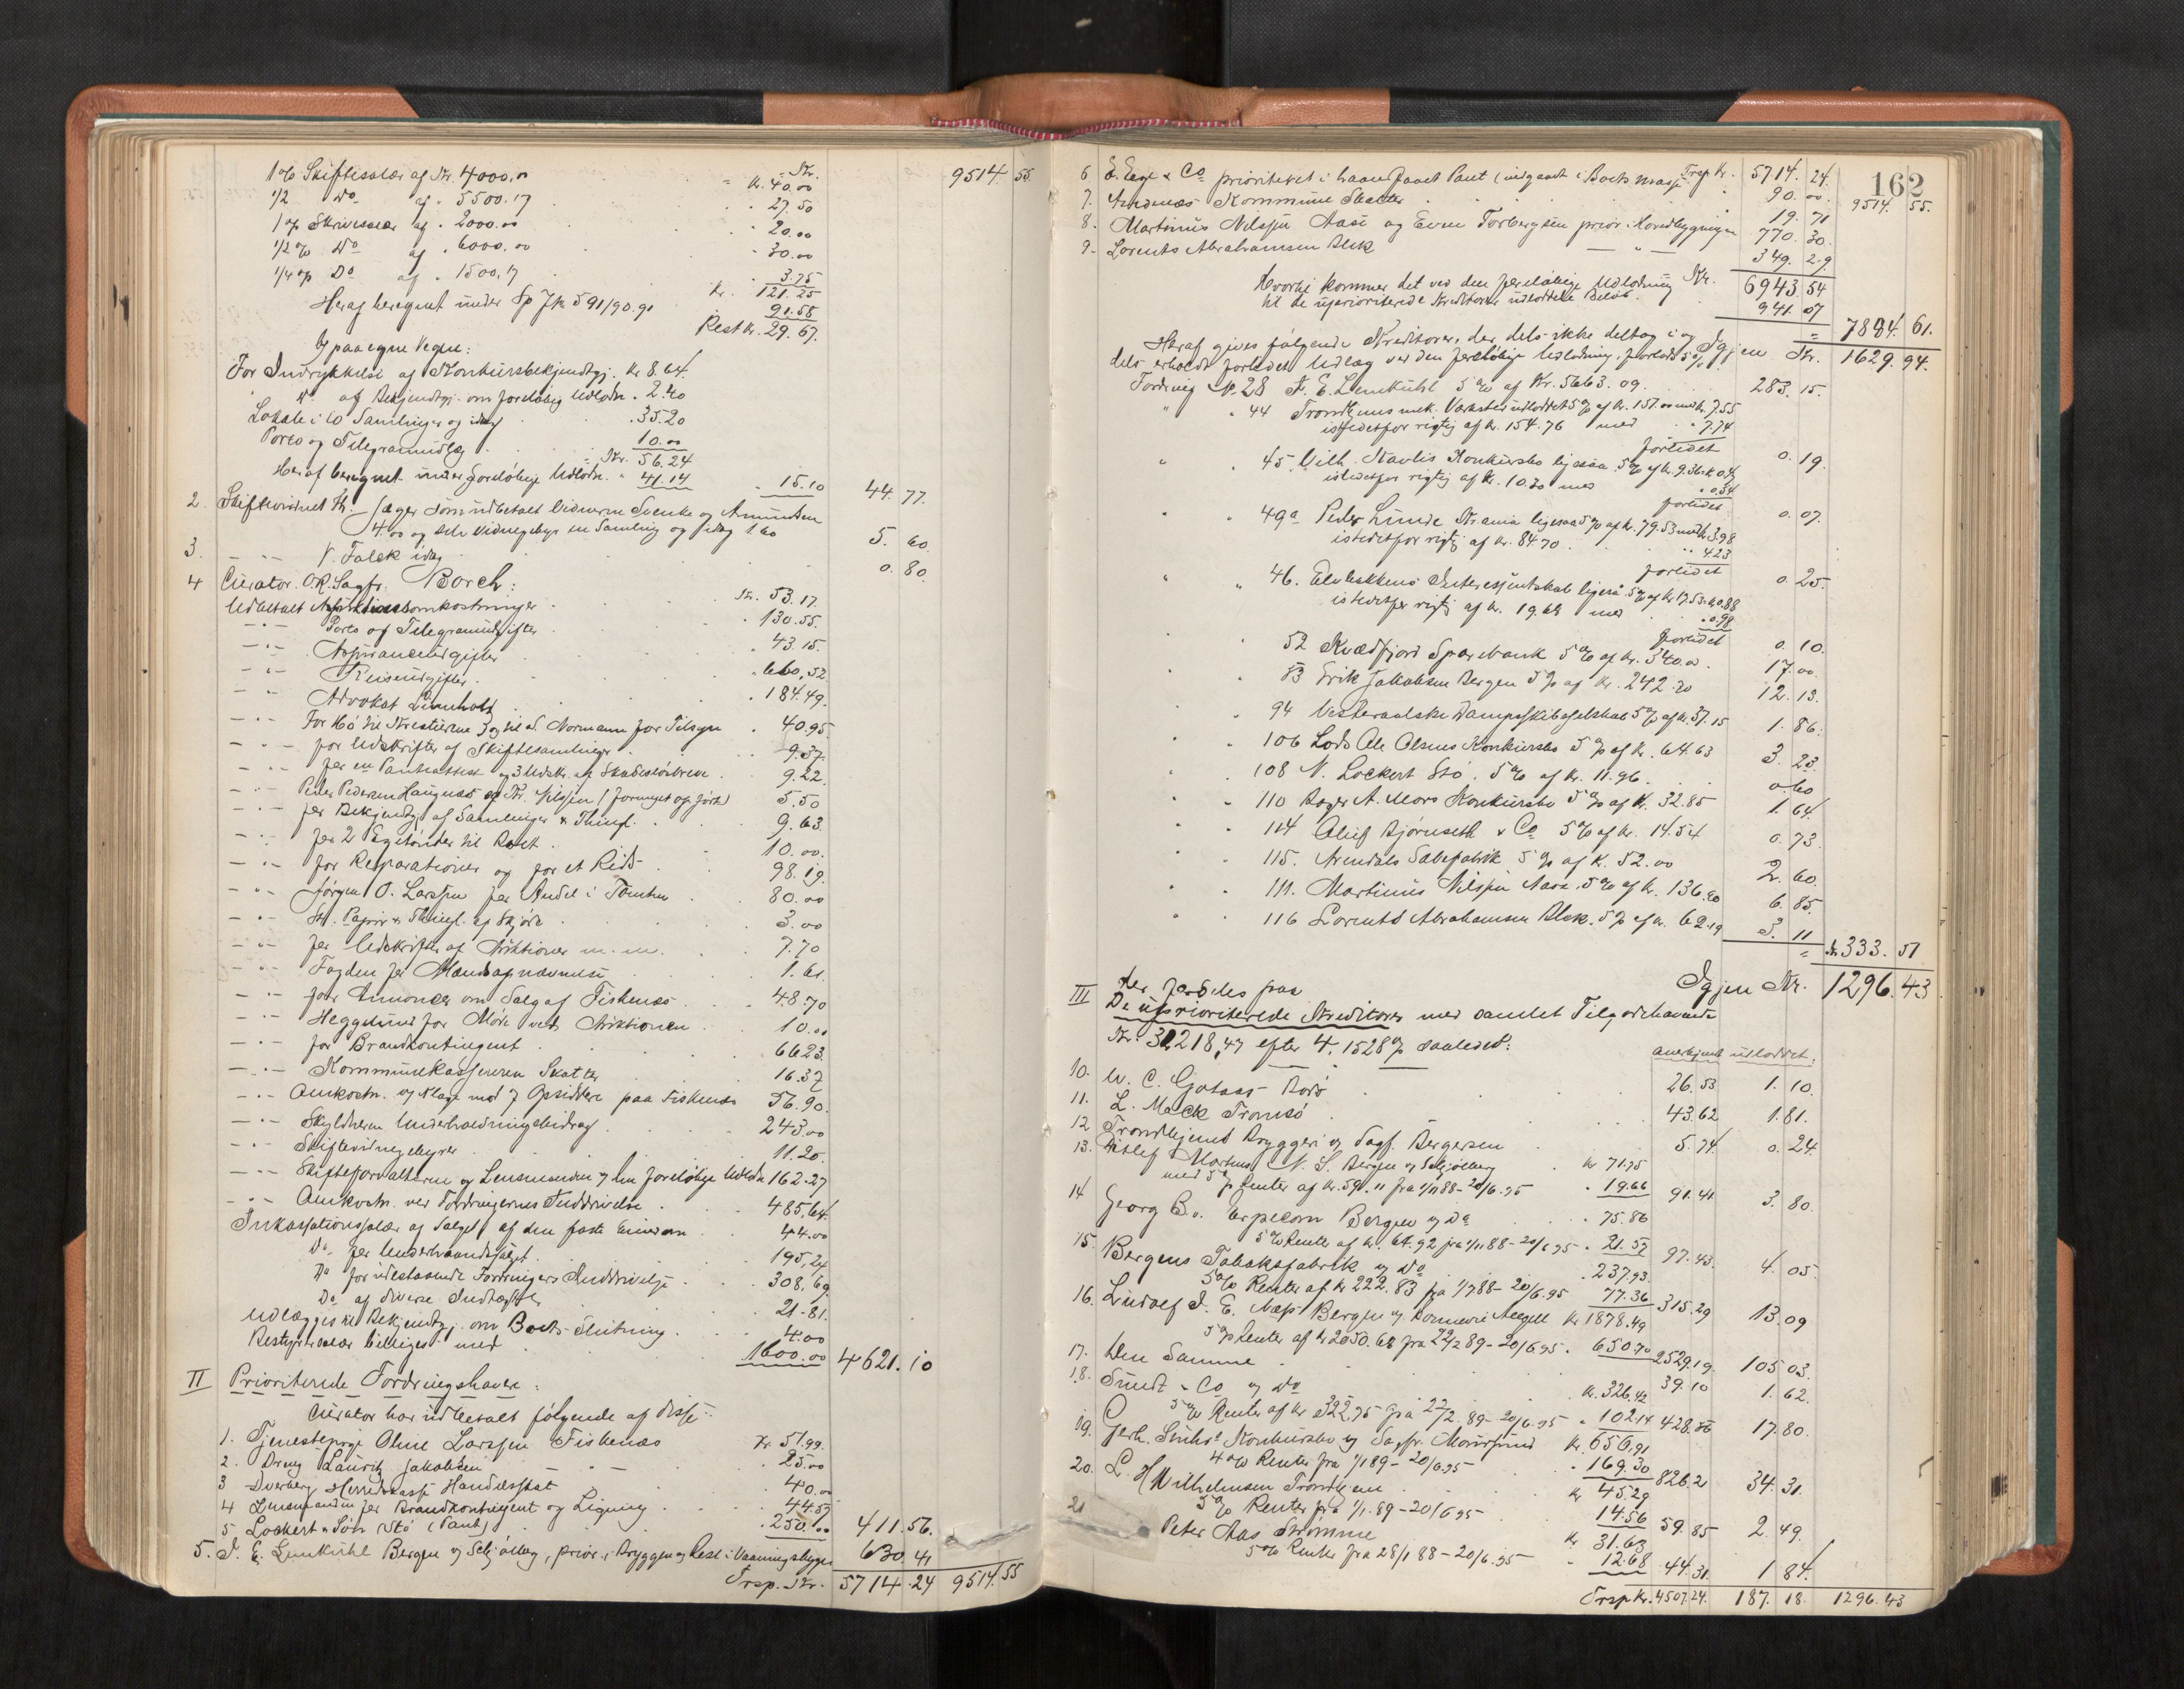 1 % Skiftesalær af Kr. 4000,00 = Kr. 40.00 9514 55.
1/2 Do af " 5500.17 " 27.50
1 % Skrivesalær af " 2000.00 " 20.00
1/2 % Do af " 6000.00 " 30.00
1/4 % Do af " 1500,17 3.75
Kr. 121.25
Heraf beregnet under 91.58
Rest Kr. 29.67.
Og paa egne Vegne:
For Indrykkelse af Konkursbekjendtgj. Kr 8.64.
Do af Bekjendtgj. om foreløbig Udlodn. " 2.40
Lokale i 10 Samlinger og idag " 35.20
Porto og Telegramudlæg 10.00
Kr. 56.24
Heraf beregnet under foreløbige Udlodn. " 41.14 " 15.10 44. 77.
2. Skiftevidnet
4.00 og selv Vidnegebyr en Samling og idag 1.60 5. 60.
3. - " - V. Falck idag 0. 80.
4 Curator O.R.Sagfr. Borch:
Udbetalt Auktionsomkostninger Kr. 53.17.
- " - Porto og Telegramudgifter " 130.55.
- " - Assuranceudgifter " 43.15.
- " - Reiseudgifter " 660,52.
- " - Advokat " 184.49.
- " - For Hø til Kreaturene og til S. Normann for Tilsyn " 40.95.
- " - for Udskrifter af Skiftesamlinger 9.37.
- " - for en Panteattest og 3 Udskr. af Skadesløsbreve 9.22.
Peder Pedersen Haugnæs og Kr. Nilssen 5.50
- " - for Bekjendtgj. af Samlinger & Thingl. 9.63.
- " - for 2 10.00.
- " - for Reparationer og for et Reb 98.19.
- " - Jørgen O. Larssen for Andel i Tomten 80.00
- " - St. Papir & Thingl. af Skjøde 3.00
- " - for Udskrifter af Auktioner m.m. 7.70
- " - Fogden for Mandsopnævnelse 1.61.
- " - for Annoncer om Salg af Fiskenæs 48.70
- " - Heggelund for Møde ved Auktionen 10.00
- " - for Brandkontingent 66.23.
- " - Kommunekassereren Skatter 16.37
- " - Omkostn. og Klage mod 7 Opsiddere paa Fiskenæs 56.90.
- " - Skyldneren Underholdningsbidrag 243.00
- " - Skiftevidnegebyrer 11.20.
- " - Skifteforvalteren og Lensmanden i den foreløbige Udlodn 162.27
- " - Omkostn. ved Fordringernes Inddrivelse 485,64.
Inkassationssalær af Salget af den faste Eiendom 44.00
Do for Underhaandssalget 195,24
Do for udestaaende Fordringers Inddrivelse 308,69.
Do af diverse Indtægter 21.81.
Udlægges til Bekjendtgj. om Boets Slutning 4.00
Bestyrersalær billiges med 1600.00 4621.10
II Prioriterede Fordringshavere:
Curator har udbetalt følgende af disse:
1. Tjenestepige Oline Larssen Fiskenæs Kr 51.99.
2. Dreng Lauritz Jakobsen 25.00
3 Dverberg Herredskasse Handelsskat 40.00
4 Lensmanden for Brandkontingent og Ligning 44.57
5 Lockert & Søn Stø (Pant) 250.00 411.56.
5. J. E. Lemkühl Bergen og Schjølberg, prior. i Bryggen og Rest i Vaaningsbygn. 630.41
Trsp. Kr. 5714.24 9514.55
162
6 E. Eage & Co prioriteret i haandfaaet Pant (indgaaet i Boets Masse Trsp Kr. 5714. 24. 9514. 55.
7. Andenæs Kommune Skatter 90. 00.
19. 71
8. Martinus Nilssen Aase og Even Torbergsen prior. i Hovedbygningen 770. 30.
9. Lorents Abrahamsen Blek - " - 349. 29.
Hvortil kommer det ved den foreløbige Udlodning Kr. 6943 54
til de uprioriterede Kreditorer udloddede Beløb 941. 07 = 7884. 61.
Igjen Kr. 1629. 94.
Heraf gives følgende Kreditorer, der dels ikke deltog i og
dels erholdt forlidet Udlæg ved den foreløbige Udlodning, forlods 5 %:
Fordring N. 28 J. E. Lemkühl 5 % af Kr. 5663.09. 283. 15.
" " 44 Trondhjems mek. Værksted udloddet 5 % af Kr. 151.00 med Kr. 7.55
istedetfor rigtig af Kr. 154.76 med " 7.74
forlidet 0. 19.
" " 45 Vilh. Konkursbo ligesaa 5 % af Kr. 9.36
istedetfor rigtig af Kr. 10.30 med " 0.54
forlidet 0. 07.
" " 49a Peder Lunde Krania ligesaa 5 % af Kr. 79.53 med Kr. 3.98
istedetfor rigtig af Kr. 84.70 " 4.23
forlidet 0. 25.
" " 46. Interessentskab ligesaa 5 % af Kr 17.53 Kr 0.88
istedetfor rigtig af Kr. 19.62 med " 0.98
forlidet 0. 10.
" " 52 Kvædfjord Sparebank 5 % af Kr. 340.00. 17. 00.
" " 53 Erik Jakobsen Bergen 5 % af Kr. 242.20 12. 13.
" " 94 Vesteraalske Dampskibsselskab 5 % af Kr. 37.15 1. 86.
" " 106 Lods Ole Olsens Konkursbo 5 % af Kr. 64.63 3. 23.
" " 108 N. Lockert Stø. 5 % af Kr. 11.96. 0. 60
" " 110 Roger A. Mors Konkursbo 5 % af Kr. 32.85 1. 64.
" " 114 Oluf Bjørnseth & Co 5 % af Kr. 14.54 0. 73.
" " 115. Arendals Sæbefabrik 5 % af Kr. 52.00 2. 60.
" " 111. Martinus Nilssen Aase 5 % af Kr. 136.90 6. 85.
" " 116 Lorents Abrahamsen Blek. 5 % af Kr. 62.19 3. 11 = Kr. 333. 51
Igjen Kr. 1296.43
der fordeles paa
III De uprioriterede Kreditorer med samlet Tilgodehavende
Kr. 31218,47 efter 4,1528 % saaledes:
anerkjendt udloddet:
10. W. C. Gotaas Bodø 26.53 1. 10.
11. L. Mack Tromsø 43.62 1.81.
12 Trondhjems Bryggeri og Sagf. Bergersen 5.74 0. 24.
13. Ditlef Martens N. S. Bergen og Schjølberg Kr 71.75
med 5 % Renter af Kr. 59.11 fra 1/11 88 - 20/6.95 " 19.66 91.41 3. 80.
14 Georg B. v. Erpecom Bergen og Do " 75.86
5 % Renter af Kr. 64.92 fra 1/11 88 - 20/6 95 " 21.57 97.43. 4. 05.
15. Bergens Tobaksfabrik og Do " 237.93
5 % Renter af Kr 222.83 fra 1/7 88 - 20/6.95 77.36 315.29 13.09
16. Ludolf J. E. Næs Bergen og Kr 1878.49
5 % Renter af Kr 2050.68 fra 22/2 89 - 20/6.95 " 650.70 2529.19. 105 03.
17. Den Samme 39.10 1. 62.
18. Sundt & Co og Do Kr. 326.42
5 % Renter af Kr 322.95 fra 22/2.89 - 20/6.95 " 102.14 428.56 17.80.
19. Gerh. Konkursbo og Sagfr. Maursund Kr. 656.91
4 % Renter fra 1/1 89 - 20/6.95 " 169.30 826.21 34.31.
20. L. H Wilhelmsen Trondhjem Kr 45.29
5 % Renter fra 1/1.89 - 20/6 95 14.56 59.85 2. 49.
21 Peter Aas Strømme Kr 31.63
5 % Renter fra 28/1 88 - 20/6.95 " 12.68 44.31. 1 84.
Trsp Kr. 4507.24. 187. 18. 1296.43